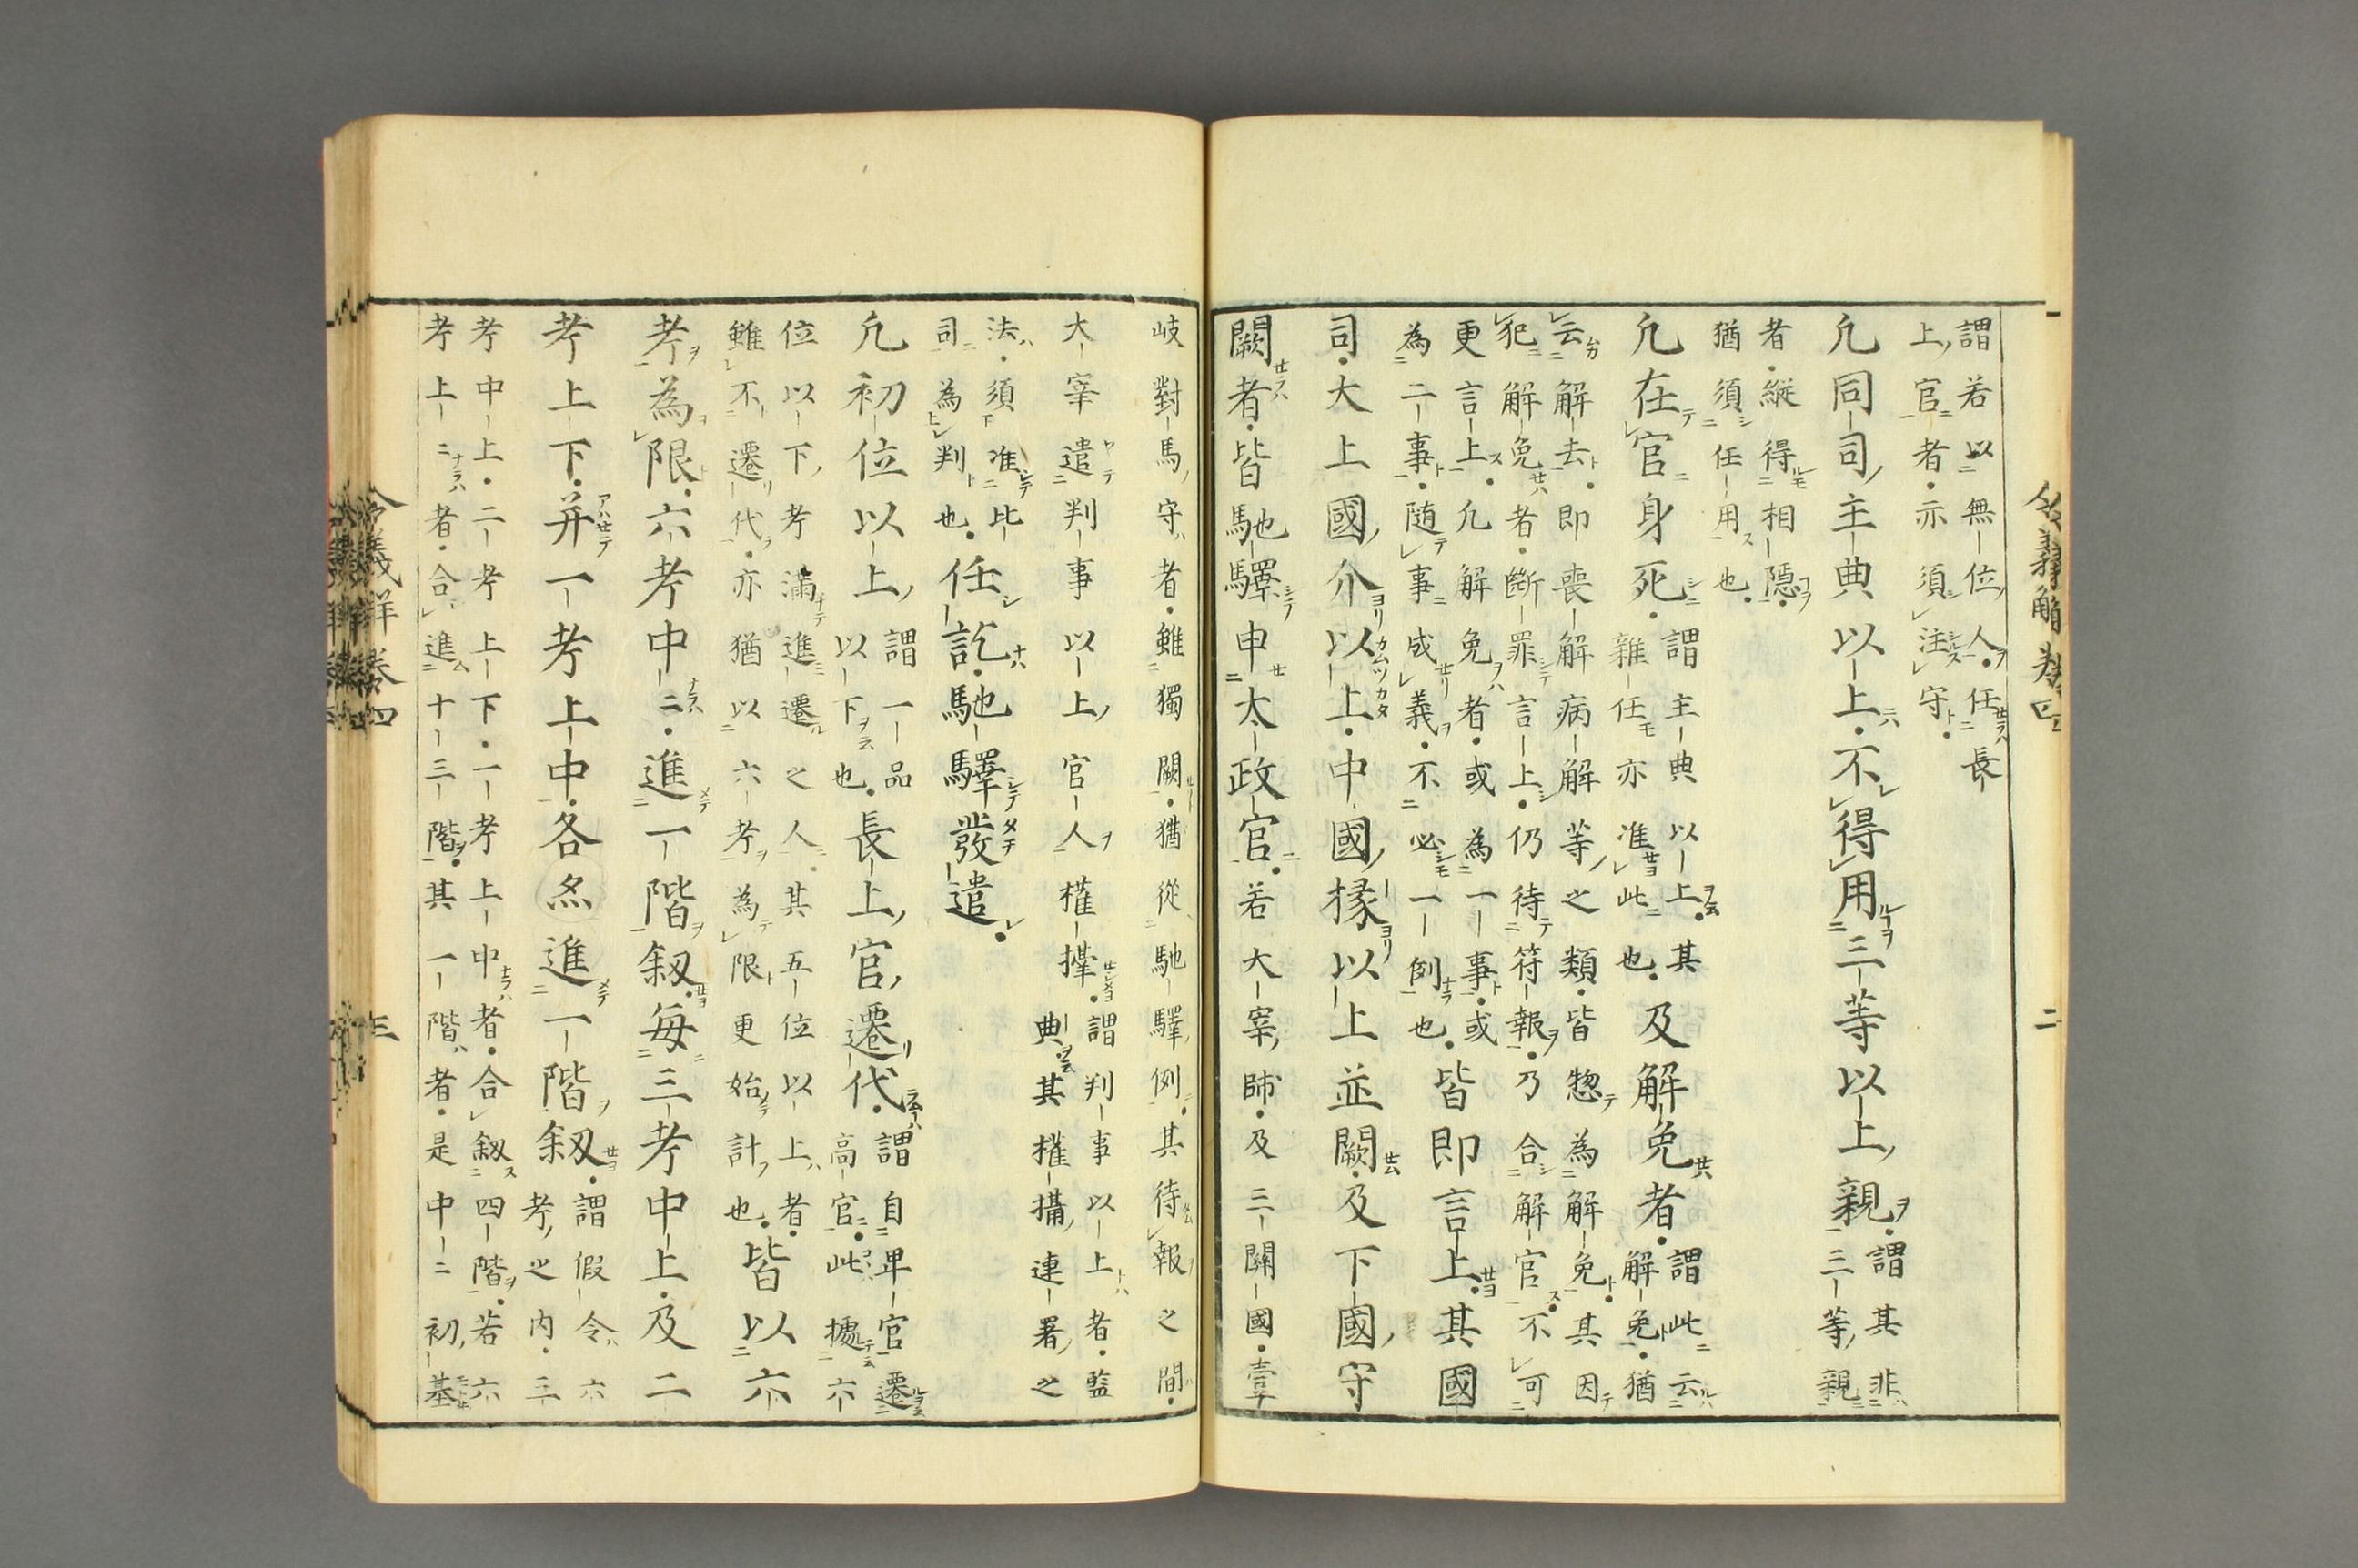 謂若以無位人任長
上官者亦須注守
凢同司主典以上不得用三等以上親謂其非
三等親
者縱得相隱
猶須任用也
凢在官身死謂主典以上其
雜任亦准此也及解免者謂此云
解免猶
云解去即喪解病解等之類皆惣為解免其因
犯解免者斷罪言上仍待符報乃合解官不可
更言上凢解免者或為一事或
為二事随事成義不必一例也皆即言上其國
司大上國介以上中國掾以上並闕及下國守
闕者皆馳驛申太政官若大宰師及三關國壹
岐對馬守者雖獨闕猶從馳驛例其待報之間
大宰遣判事以上官人權攝謂判事以上者監
典其權攝連署之
法須准比
司為判也任訖馳驛發遣
凢初位以上謂一品
以下也長上官遷代謂自卑官遷
高官此據六
位以下考滿進遷之人其五位以上者
雖不遷代亦猶以六考為限更始計也皆以六
考為限六考中二進一階叙每三考中上及二
考上下并一考上中各亦進一階叙謂假令六
考之内三
考中上二考上下一考上中者合叙四階若六
考上二者合進十三階其一階者是中二初基
令義解卷四
二